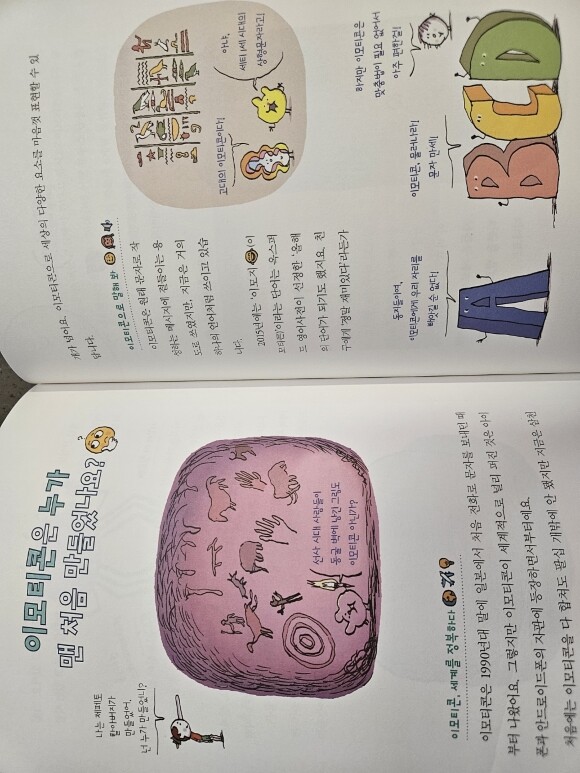 이모티콘은 누가
맨 처음 만들었나요?
나는 제페토
할아버지가
만들었어.
넌 누가 만들었니?
선사 시대 사람들이
동굴 벽에 남긴 그림도
이모티콘 아닌가?
이모티콘, 세계를 정복하다
이모티콘은 1990년대 말에 일본에서 처음 전화로 문자를 보내던 때
부터 나왔어요. 그렇지만 이모티콘이 세계적으로 널리 퍼진 것은 아이
폰과 안드로이드폰의 자판에 등장하면서부터예요.
처음에는 이모티콘을 다 합쳐도 팔십 개밖에 안 됐지만 지금은 삼천
개가 넘어요. 이모티콘으로 세상의 다양한 요소를 마음껏 표현할 수 있
답니다.
이모티콘으로 말해 봐!
이모티콘은 원래 문자로 작
성하는 메시지에 곁들이는 용
도로 쓰였지만, 지금은 거의
하나의 언어처럼 쓰이고 있습
니다.
2015년에는 '이모지(이
모티콘)'이라는 단어는 옥스퍼
드 영어사전이 선정한 '올해
의 단어'가 되기도 했지요. 친
구에게 '정말 재미있다'라든가
고대의 이모티콘이다!
아냐,
세티 1세 시대의
상형문자라고!
동지들이여,
이모티콘에게 우리 자리를
빼앗길 순 없다!
이모티콘, 물러나라!
문자 만세!
하지만 이모티콘은
맞춤법이 필요 없어서
아주 편한걸!
A
B
C
D